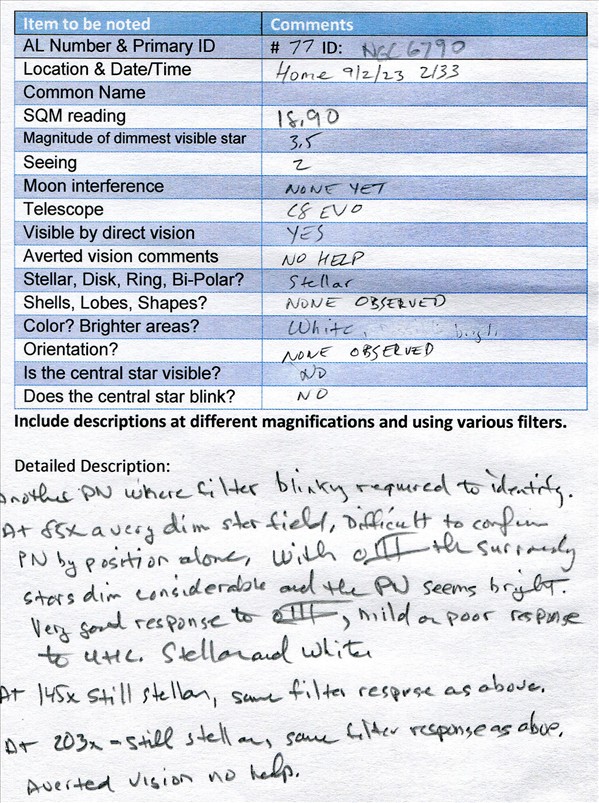 Item to be noted Comments
AL Number & Primary ID # 77 ID: NGC 6790
Location & Date/Time Home 9/2/23 2133
Common Name
SQM reading 18.90
Magnitude of dimmest visible star 3.5
Seeing 2
Moon interference NONE YET
Telescope C8 EVO
Visible by direct vision YES
Averted vision comments NO HELP
Stellar, Disk, Ring, Bi-Polar? Stellar
Shells, Lobes, Shapes? NONE OBSERVED
Color? Brighter areas? White,
Orientation? NONE OBSERVED
Is the central star visible? NO
Does the central star blink? NO
Include descriptions at different magnifications and using various filters.
Detailed Description:
Another PN where filter blinky required to identify.
At 85x a very dim star field, Difficult to confirm
PN by position alone, With OIII the
stars dim considerable and the PN seems bright.
Very good response to OIII, mild or poor response
to UHC. Stellar and White
At 145x still stellar, same filter response as above.
At 203x - still stellar, same filter response as above.
Averted vision no help.